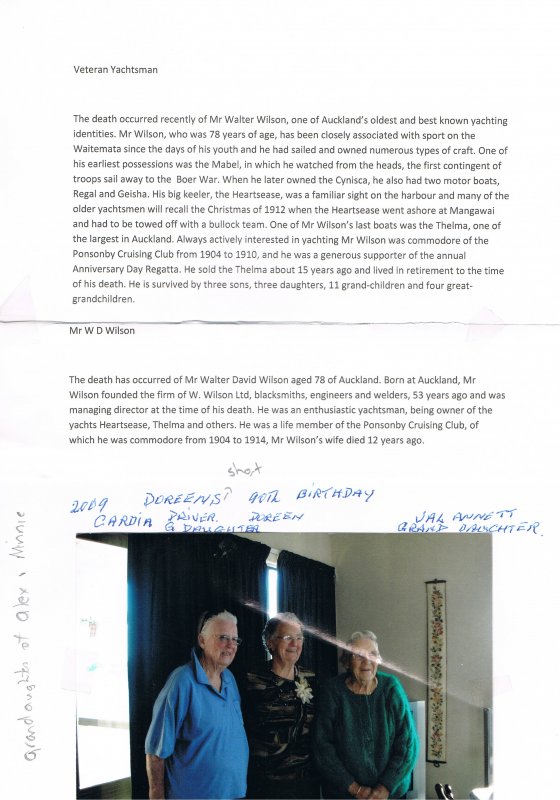 Veteran Yachtsman
The death occurred recently of Mr Walter Wilson, one of Auckland's oldest and best known yachting
identities. Mr Wilson, who was 78 years of age, has been closely associated with sport on the
Waitemata since the days of his youth and he had sailed and owned numerous types of craft. One of
his earliest possessions was the Mabel, in which he watched from the heads, the first contingent of
troops sail away to the Boer War. When he later owned the Cynisca, he also had two motor boats,
Regal and Geisha. His big keeler, the Heartsease, was a familiar sight on the harbour and many of the
older yachtsmen will recall the Christmas of 1912 when the Heartsease went ashore at Mangawai
and had to be towed off with a bullock team. One of Mr Wilson's last boats was the Thelma, one of
the largest in Auckland. Always actively interested in yachting Mr Wilson was commodore of the
Ponsonby Cruising Club from 1904 to 1910, and he was a generous supporter of the annual
Anniversary Day Regatta. He sold the Thelma about 15 years ago and lived in retirement to the time
of his death. He is survived by three sons, three daughters, 11 grand-children and four great-
grandchildren.
Mr W D Wilson
The death has occurred of Mr Walter David Wilson aged 78 of Auckland. Born at Auckland, Mr
Wilson founded the firm of W. Wilson Ltd, blacksmiths, engineers and welders, 53 years ago and was
managing director at the time of his death. He was an enthusiastic yachtsman, being owner of the
yachts Heartsease, Thelma and others. He was a life member of the Ponsonby Cruising Club, of
which he was commodore from 1904 to 1914, Mr Wilson's wife died 12 years ago.
short
2009 DOREENS 90TH BIRTHDAY
CARDIA DRIVER. DOREEN VAL ANNETT
G DAUGHTER GRAND DAUGHTER.
grandaughters of alex & Minnie